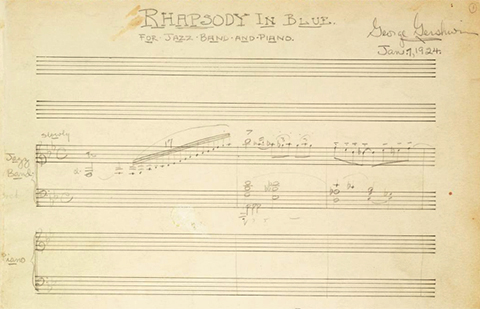 RHAPSODY IN BLUE.
FOR JAZZ BAND AND PIANO.
George Gershwin
Jan 7, 1924.
slowly
17
7
Jazz
Band
Piano